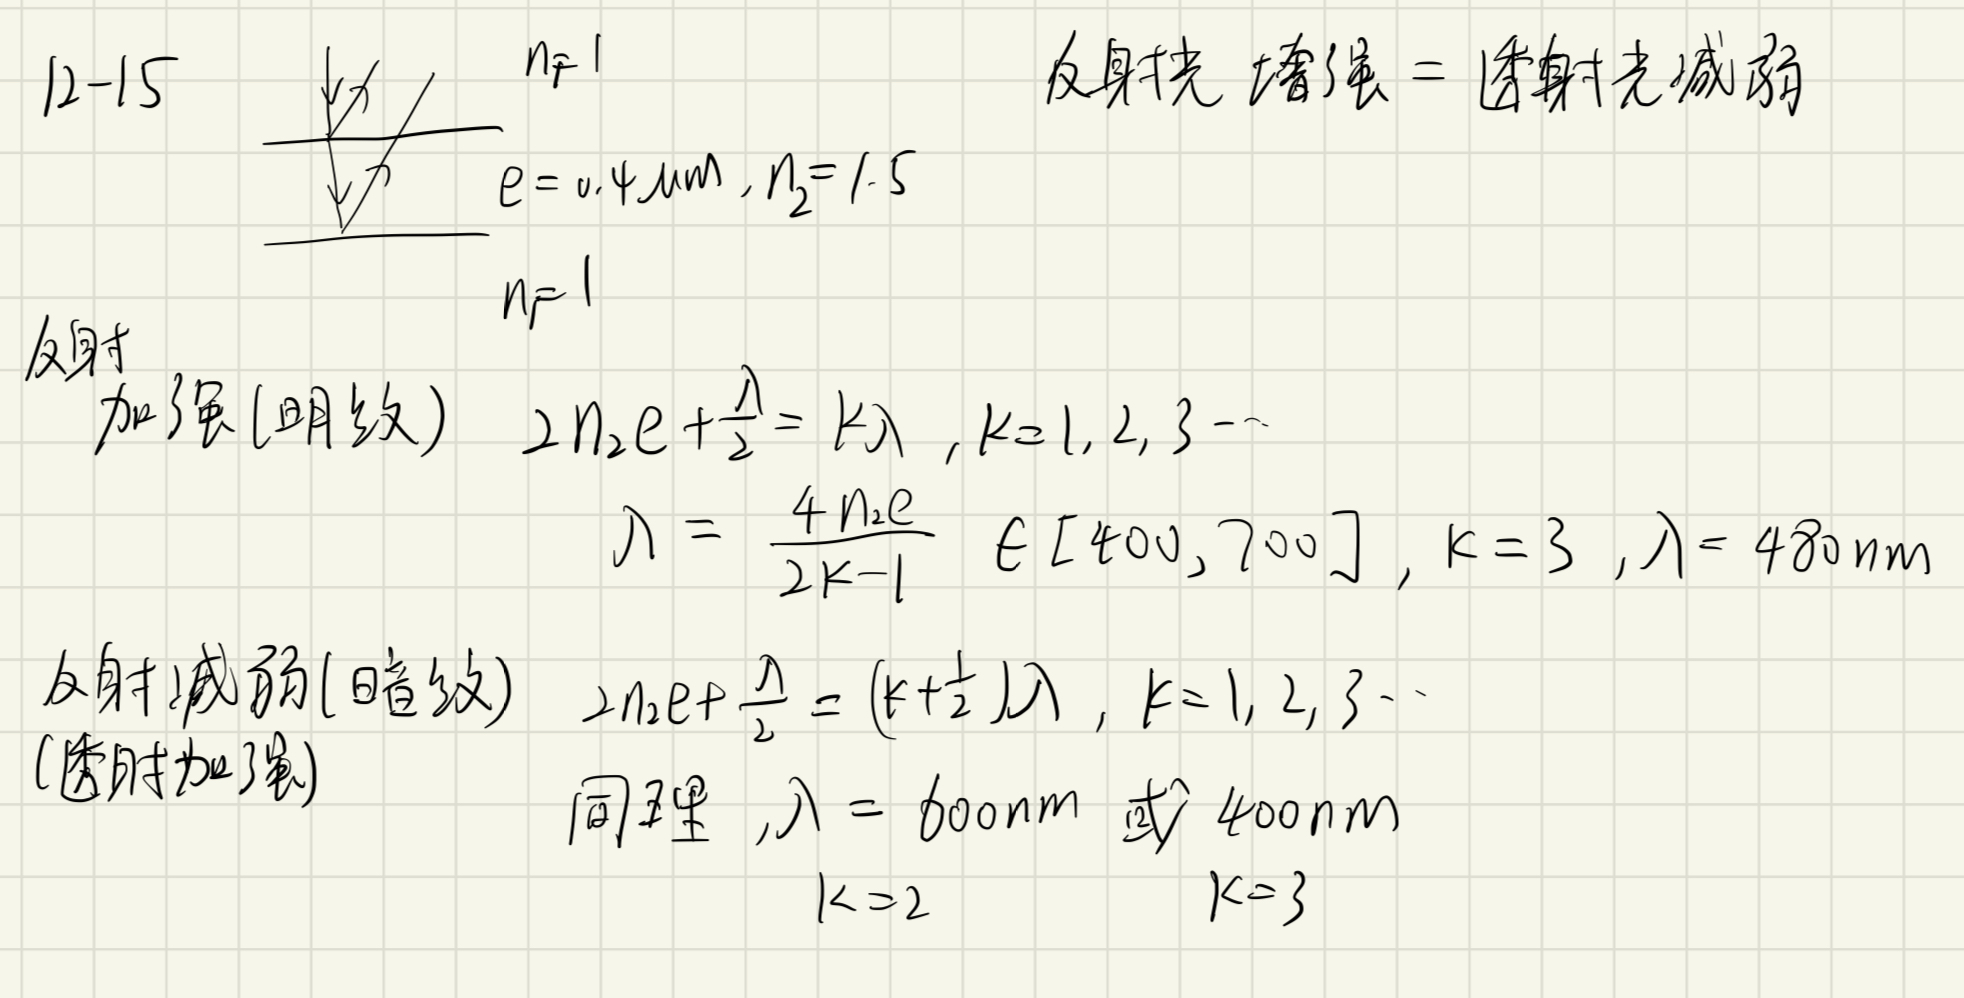 12-15
n₁=1
反射光 增强 = 透射光减弱
e=0.4μm, n₂=1.5
n₁=1
反射
加强(明纹) 2n₂e+λ/2=kλ, k=1,2,3…
λ = 4n₂e/(2k-1) ∈[400,700], k=3, λ=480nm
反射减弱(暗纹) 2n₂e+λ/2=(k+1/2)λ, k=1,2,3…
(透射加强)
同理, λ = 600nm 或 400nm
k=2 k=3